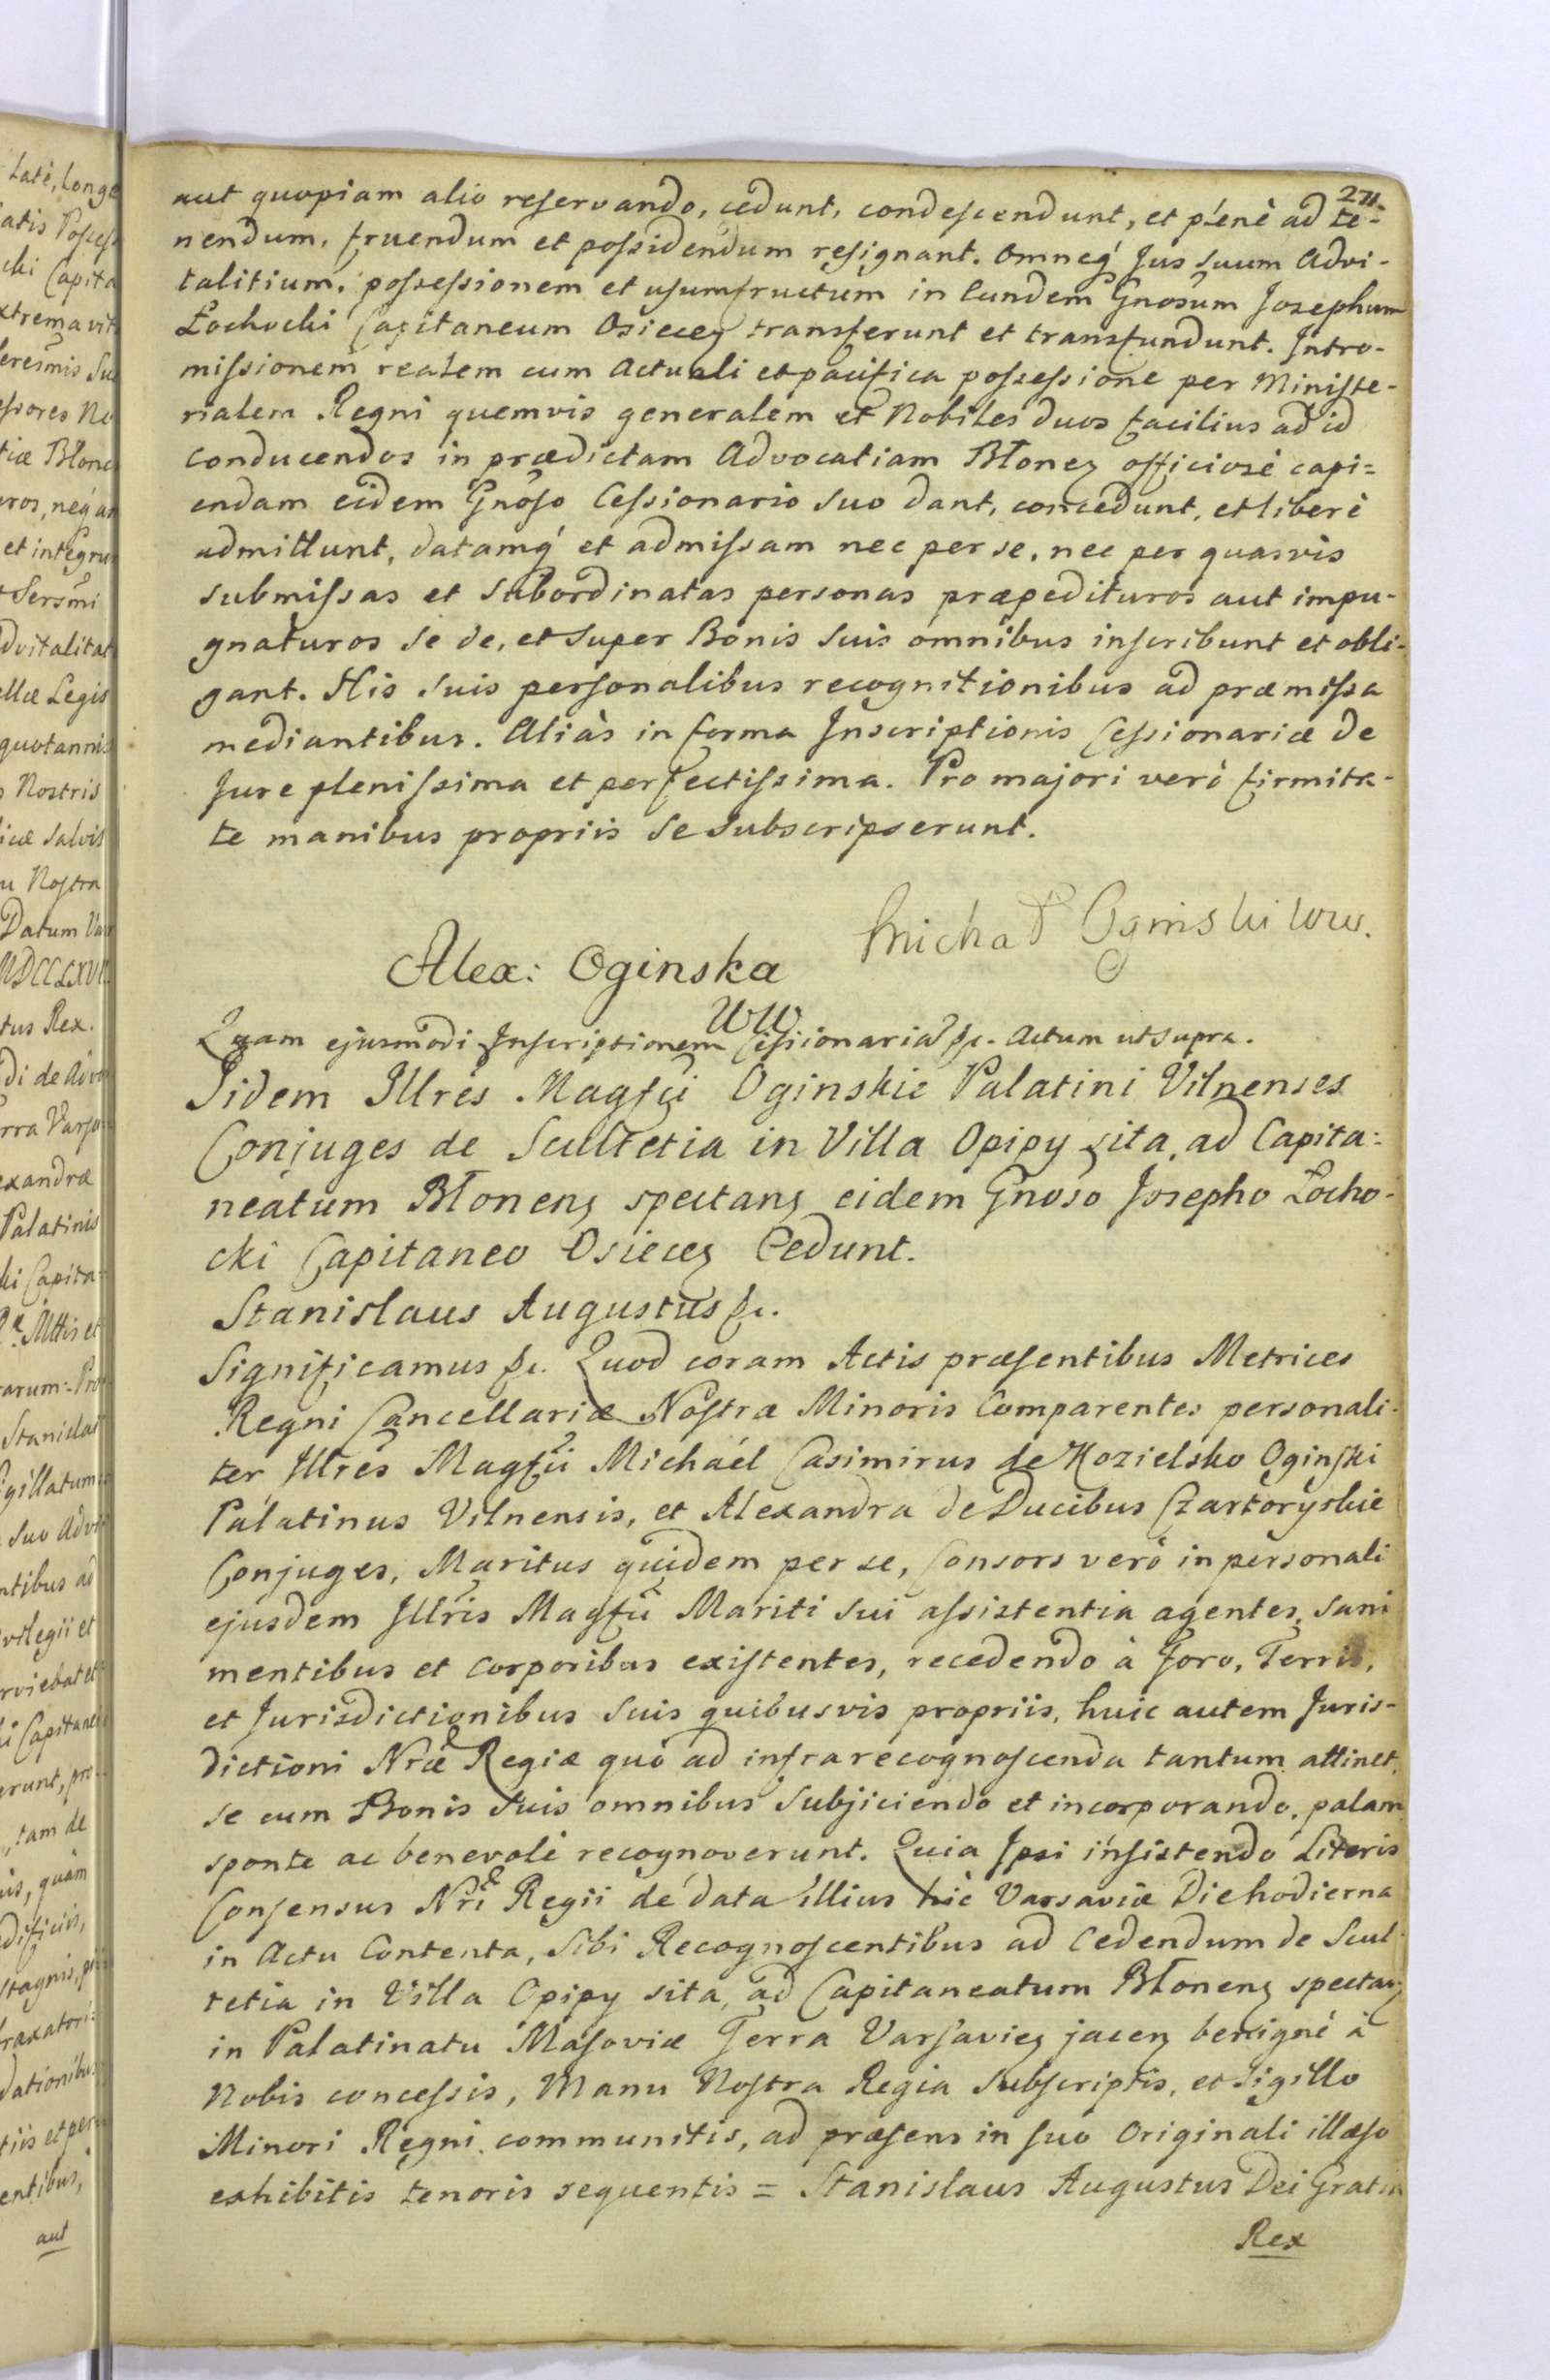 271.
aut quopiam alio reservando, cedunt, condescendunt, et plenè ad te-
nendum, fruendum et possidendum resignant. Omneq́ Jus suum Advi-
talitium, possessionem et usumfructum in Eundem Gnosum Josephum
Łochocki Capitaneum Osiecen transferunt et transfundunt. Intro-
missionem realem cum actuali et pacifica possessione per Ministe-
rialem Regni quemvis generalem et Nobiles duos facilius ad id
conducendos in prædictam Advocatiam Błonen officiosè capi=
endam eidem Gnoso Cessionario suo dant, concedunt, et liberè
admittunt, datamq́ et admissam nec per se, nec per quasvis
submissas et subordinatas personas præpedituros aut impu-
gnaturos se de, et super Bonis suis omnibus inscribunt et obli-
gant. His suis personalibus recognitionibus ad præmissa
mediantibus. Aliàs in forma Inscriptionis Cessionariæ de
Jure plenissima et perfectissima. Pro majori verò firmita-
te manibus propriis se subscripserunt.
Michał Oginski ww.
Alex: Oginska
WW
Quam ejusmodi Inscriptionem Cessionariã &c. Actum ut supra.
Iidem Illres Magfci Oginskie Palatini Vilnenses
Conjuges de Scultetia in Villa Opipy sita, ad Capita=
neatum Błonen spectan eidem Gnoso Josepho Łocho-
cki Capitaneo Osiecen Cedunt.
Stanislaus Augustus &c.
Significamus &c. Quod coram Actis præsentibus Metrices
Regni Cancellariæ Nostræ Minoris Comparentes personali-
ter Illres Magfci Michaél Casimirus de Kozielsko Oginski
Palatinus Vilnensis, et Alexandra de Ducibus Czartoryskie
Conjuges, Maritus quidem per se, Consors verò in personali
ejusdem Illris Magfci Mariti sui assistentia agentes, sani
mentibus et corporibus existentes, recedendo à Foro, Terris,
et Jurisdictionibus suis quibusvis propriis, huic autem Juris-
dictioni Nræ Regiæ quò ad infra recognoscenda tantum attinet,
se cum Bonis suis omnibus subjiciendo et incorporando, palam
sponte ac benevolè recognoverunt. Quia Ipsi insistendo Literis
Consensus Nri Regii de data illius hic Varsaviæ Die hodierna
in Actu Contenta, sibi Recognoscentibus ad Cedendum de Scul-
tetia in Villa Opipy sita, ad Capitaneatum Błonen spectan
in Palatinatu Masoviæ Terra Varsavien jacen benignè à
Nobis concessis, Manu Nostra Regia subscriptis, et Sigillo
Minori Regni communitis, ad præsens in suo Originali illæso
exhibitis tenoris sequentis = Stanislaus Augustus Dei Gratia
Rex